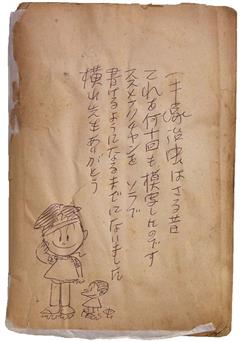 手塚治虫はさる昔
これを何十回も模写したのです
ススメフクチャンを ソラで
書けるようになるまでになりました
横山先生ありがとう